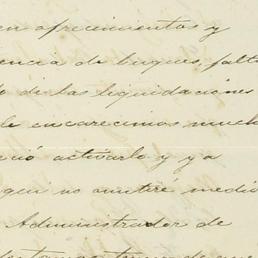 en ofrecimientos y
encia de buques, falta
de las liquidaciones
le encarecimos mucho
activarlo y ya
qui no omitiré medio
Administrador de